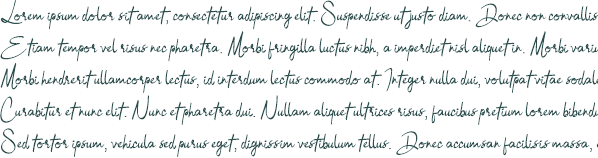 Lorem ipsum dolor sit amet, consectetur adipiscing elit. Suspendisse ut justo diam. Donec non convallis
Etiam tempor vel risus nec pharetra. Morbi fringilla luctus nibh, a imperdiet nisl aliquet in. Morbi variu
Morbi hendrerit ullamcorper lectus, id interdum lectus commodo at. Integer nulla dui, volutpat vitae sodal
Curabitur et nunc elit. Nunc et pharetra dui. Nullam aliquet ultrices risus, faucibus pretium lorem bibend
Sed tortor ipsum, vehicula sed purus eget, dignissim vestibulum tellus. Donec accumsan facilisis massa,